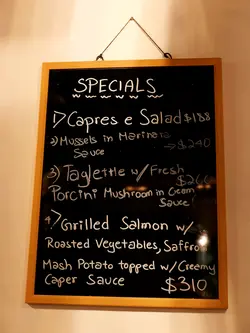 SPECIALS
1) Capres e Salad $188
2) Mussels in Marinara → $240
Sauce
3) Taglettle w/ Fresh
Porcini Mushroom in Cream
Sauce!
4) Grilled Salmon w/
Roasted Vegetables, Saffron
Mash Potato topped w/ Creamy
Caper Sauce $310